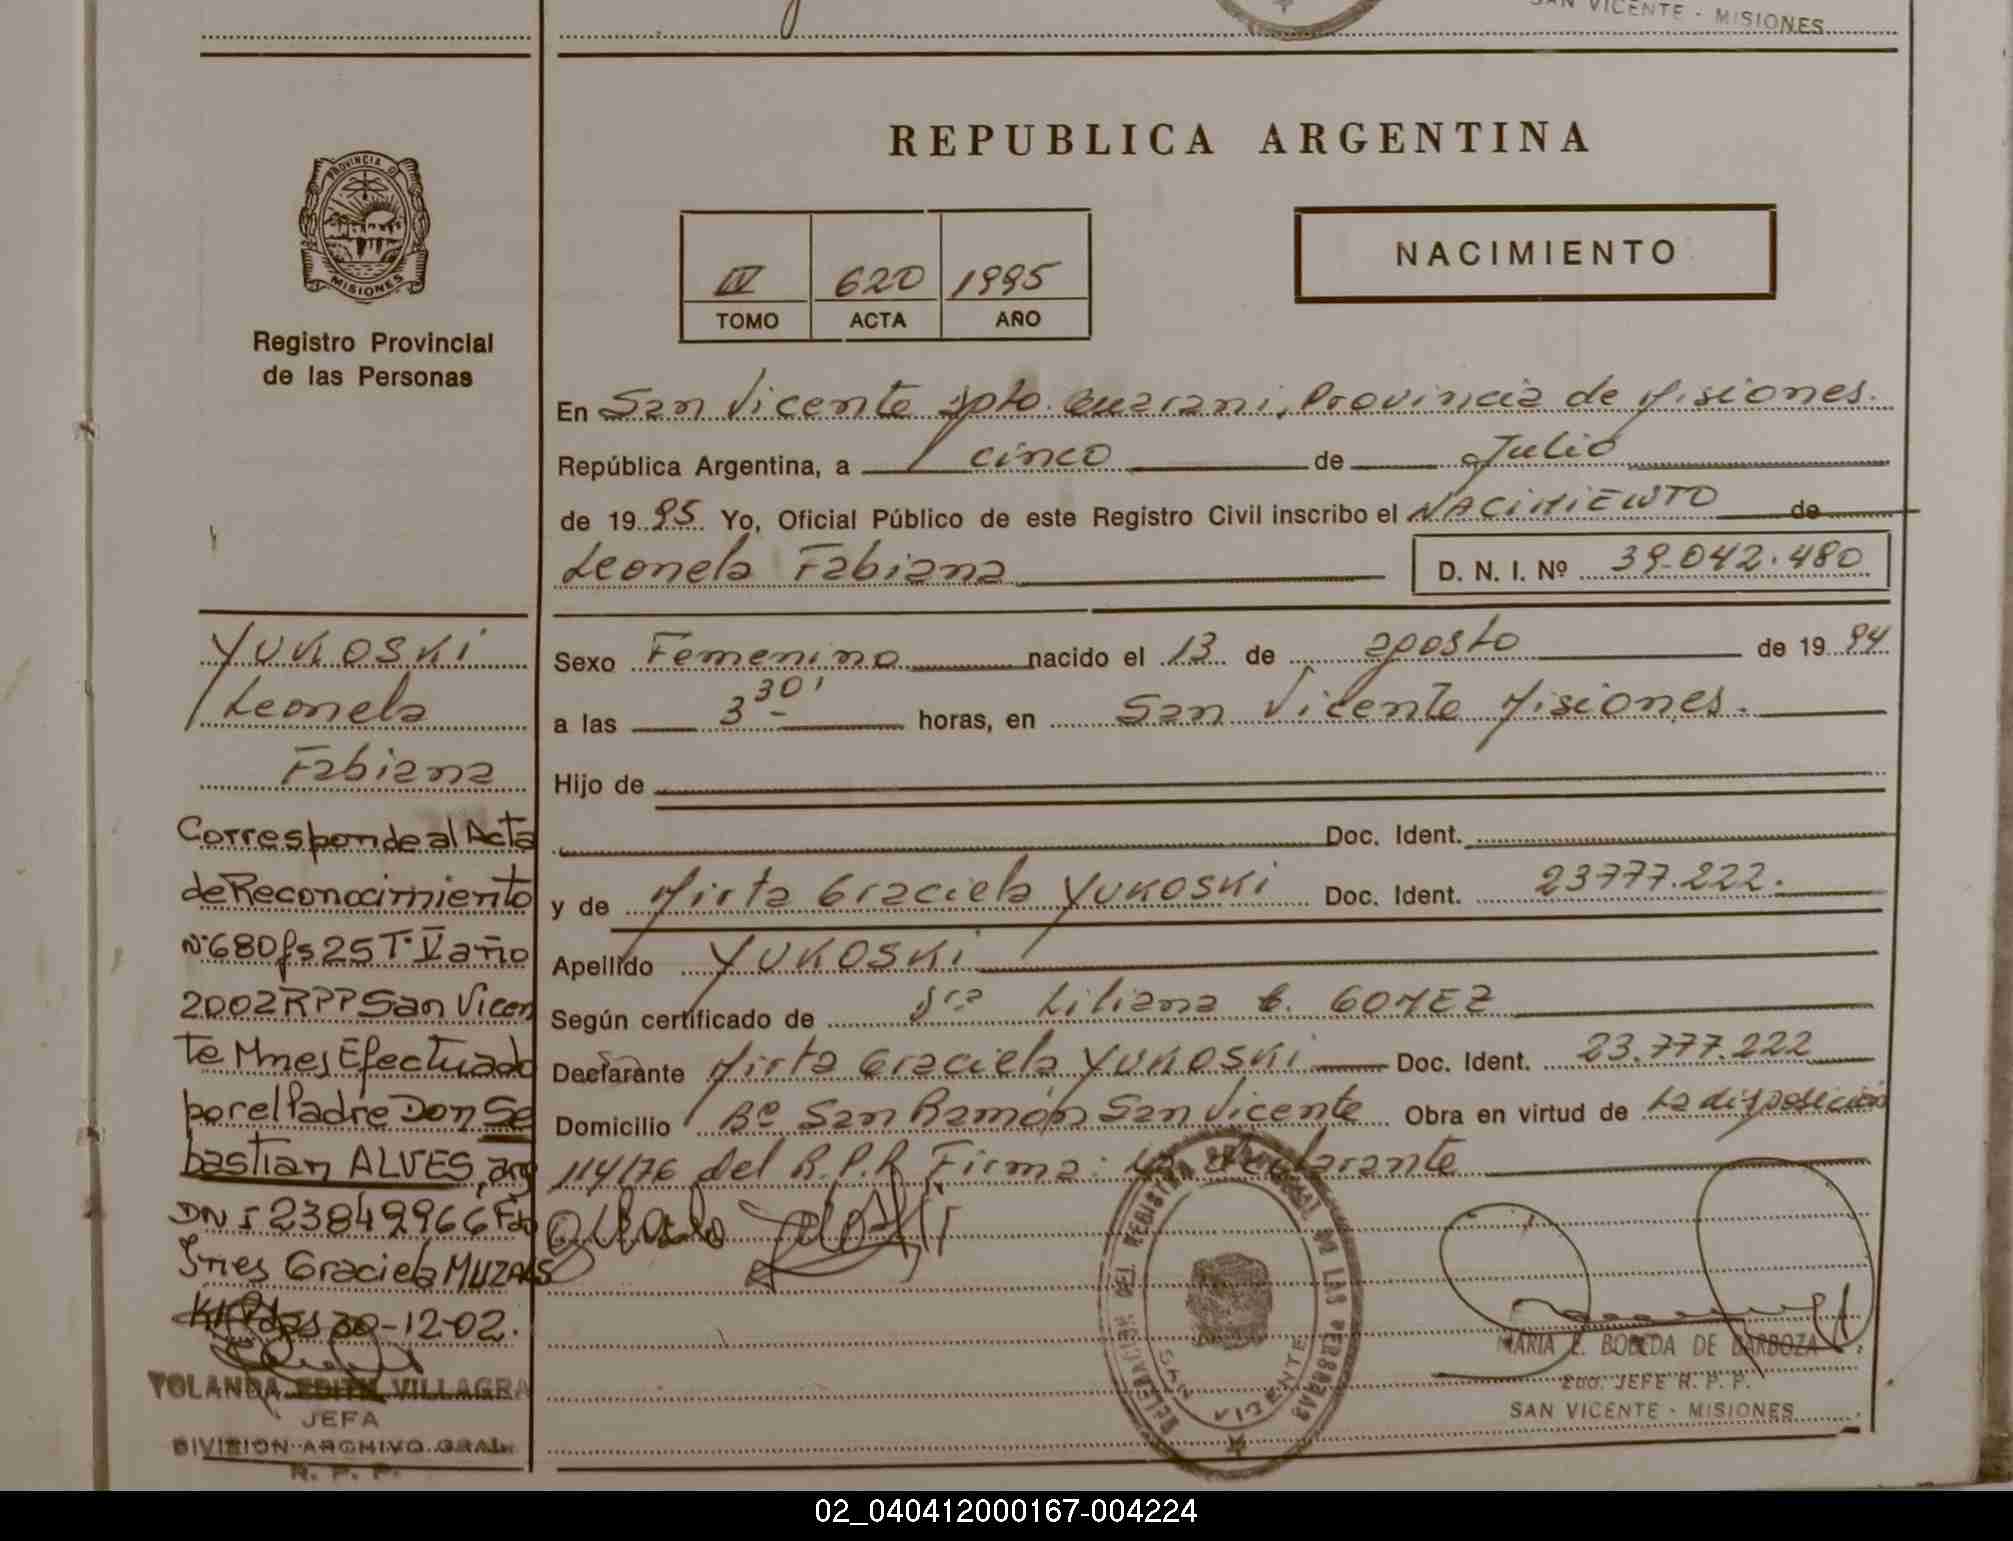 SAN VICENTE - MISIONES
REPUBLICA ARGENTINA
PROVINCIA DE MISIONES
Registro Provincial
de las Personas
IV 620 1995
TOMO ACTA AÑO
NACIMIENTO
En San Vicente Dpto. Guarani, Provincia de Misiones.
República Argentina, a cinco de Julio
de 1995 Yo, Oficial Público de este Registro Civil inscribo el NACIMIENTO de
Leonela Fabiana D. N. I. Nº 39.042.480
Sexo Femenino nacido el 13 de agosto de 1994
a las 3 30' horas, en San Vicente Misiones.
Hijo de
Doc. Ident.
y de Mirta Graciela YUKOSKI Doc. Ident. 23777.222.
Apellido YUKOSKI
Según certificado de Dra Liliana G. GOMEZ
Declarante Mirta Graciela YUKOSKI Doc. Ident. 23.777.222
Domicilio Bº San Ramón San Vicente Obra en virtud de La disposición
114/76 del R.P.P. Firma: La declarante
YUKOSKI
Leonela
Fabiana
Corresponde al Acta
de Reconocimiento
Nº 680 fs 25 Tº V año
2002 RPP San Vicen
te Mnes Efectuado
por el Padre Don Se
bastian ALVES, arg
DNI 23849966 Fdo
Ines Graciela MUZALS
KI Pdas 30-12-02.
YOLANDA EDITH VILLAGRA
JEFA
DIVISION ARCHIVO GRAL.
R. P. P.
DELEGACION DEL REGISTRO PROVINCIAL DE LAS PERSONAS
SAN VICENTE
MARIA E. BOBEDA DE BARBOZA
2do. JEFE R. P. P.
SAN VICENTE - MISIONES
02_040412000167-004224